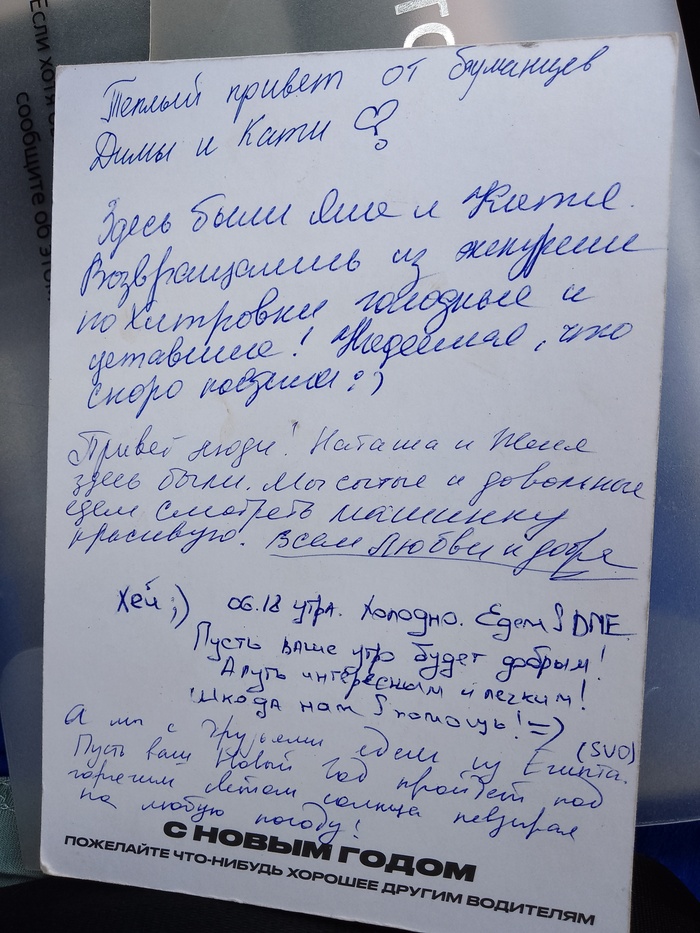 Если хотя
сообщите об этом
Теплый привет от бауманцев
Димы и Кати
Здесь были Яша и Катя.
Возвращались из экскурсии
по Хитровки голодные и
уставшие! Надеемся, что
скоро поедим :)
Привет люди! Наташа и Женя
здесь были. Мы сытые и довольные
едем смотреть машинку
красивую. Всем любви и добра
Хей ;) 06.18 утра. Холодно. Едем DME
Пусть ваше утро будет добрым!
А путь интересным и легким!
Шкода нам помощь! =)
(SVO)
А мы с друзьями едем из Египта.
Пусть ваш Новый год пройдет под
горячим светом солнца невзирая
на любую погоду!
С НОВЫМ ГОДОМ
ПОЖЕЛАЙТЕ ЧТО-НИБУДЬ ХОРОШЕЕ ДРУГИМ ВОДИТЕЛЯМ